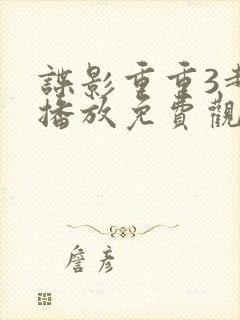 諜影重重3
播放免費觀
詹彥